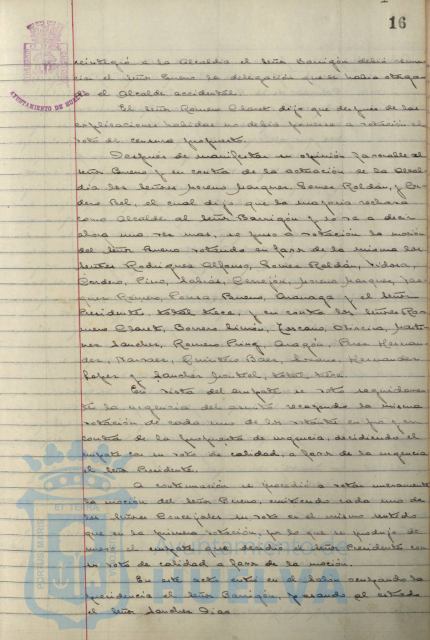 16
AYUNTAMIENTO DE HUELVA
reintegró a la Alcaldía el Señor Barrigón debió renun-
ciar el Señor Bueno la delegación que se había otorga-
do el Alcalde accidental.
El Señor Romero Claret dijo que después de las
explicaciones habidas no debía ponerse a votación el
voto de censura propuesto.
Después de manifestar su opinión favorable al
Señor Bueno y en contra de la actuación de la Alcal-
día los Señores Moreno Marquez, Gomez Roldán, y Cor-
dero Bel, el cual dijo que la mayoría rechaza
como Alcalde al Señor Barrigón y lo va a decir
ahora una vez mas, se puso a votación la moción
del Señor Bueno votando en favor de la misma los
Señores Rodriguez Alfonso, Gomez Roldán,
Cordero, Pino, Moreno Marquez,
Romero, Ponce, Bueno, y el Señor
Presidente, total trece, y en contra los Señores Ro-
mero Claret, Borrero Limón, Toscano, Mart-
inez Sanchez, Romero Aragón, Pires Hernan-
dez, Narvaez, Quintero Báez, Hernandez
Lopez y Sanchez total
En vista del empate se votó seguidamen-
te la urgencia del asunto recayendo la misma
votación de cada uno de los votantes en pro y en
contra de la propuesta de urgencia, decidiendo el
empate con su voto de calidad, a favor de la urgencia
el Señor Presidente.
A continuación se procedió a votar nuevamente
la moción del Señor Bueno, emitiendo cada uno de
los Señores Concejales su voto en el mismo sentido
que en la primera votación, por lo que se produjo de
nuevo el empate que decidió el Señor Presidente con
su voto de calidad a favor de la moción.
En este acto entra en el Salón ocupando la
presidencia el Señor Barrigón, pasando al estrado
el Señor Sanchez Dias.